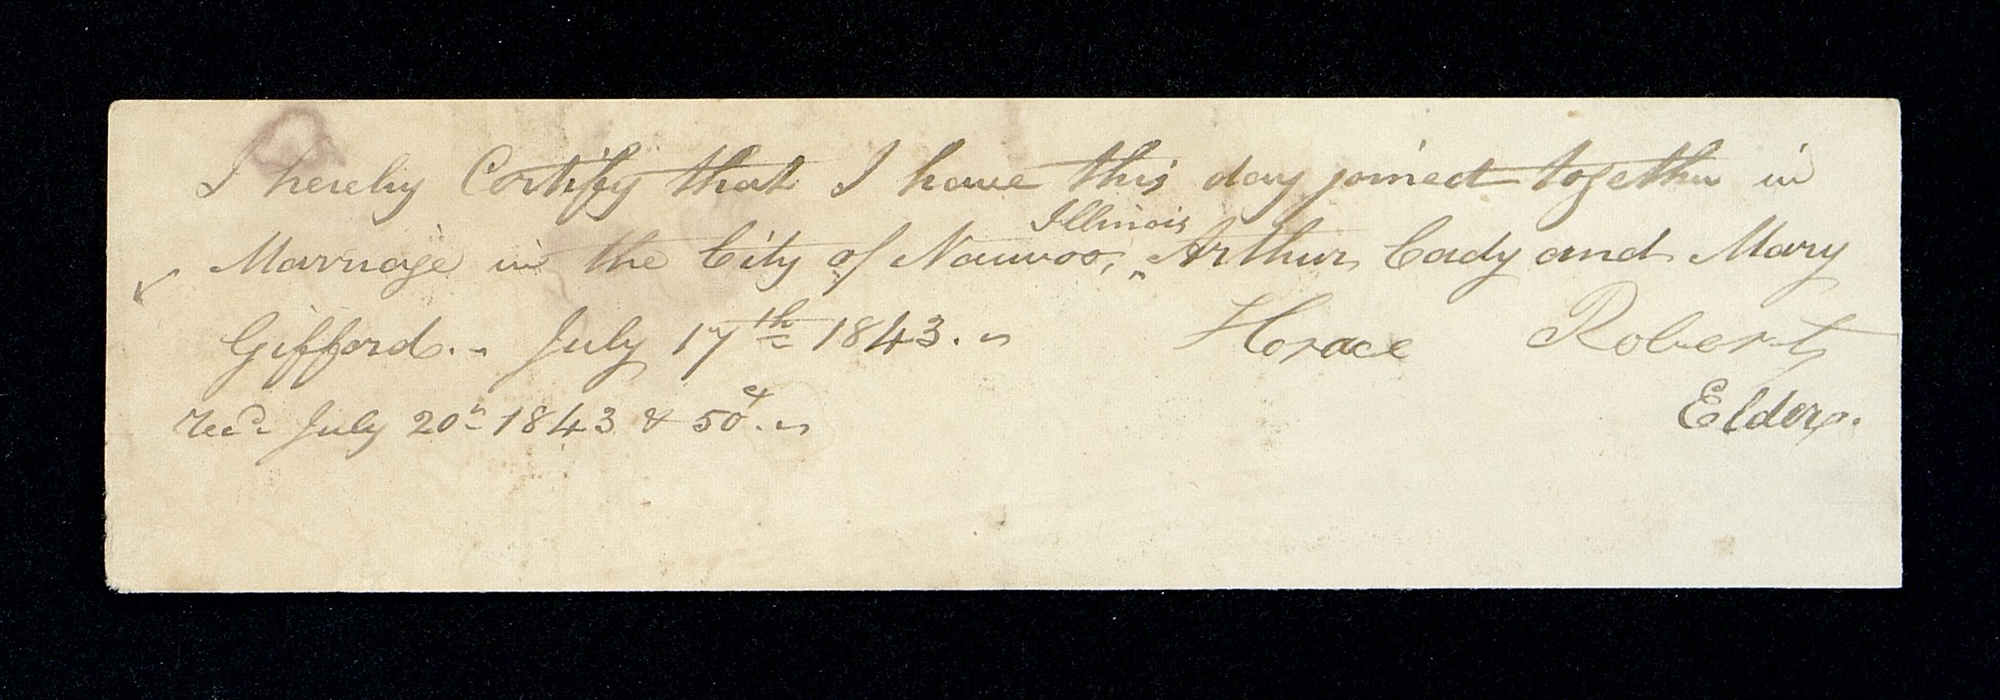 I hereby Certify that I have this day joined together in
Illinois
Marriage in the City of Nauvoo, Arthur Cady and Mary
Gifford. - July 17th 1843. Horace Roberts
Elder.
Recd July 20th 1843 & 50c.